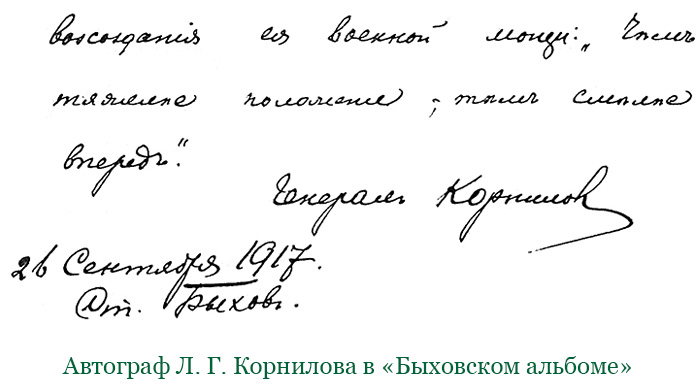 возсозданія ея военной мощи: „Чѣмъ
тяжелѣе положеніе, тѣмъ смѣлѣе
впередъ“.
Генералъ Корнилов
26 Сентября 1917.
Ст. Быховъ.
Автограф Л. Г. Корнилова в «Быховском альбоме»